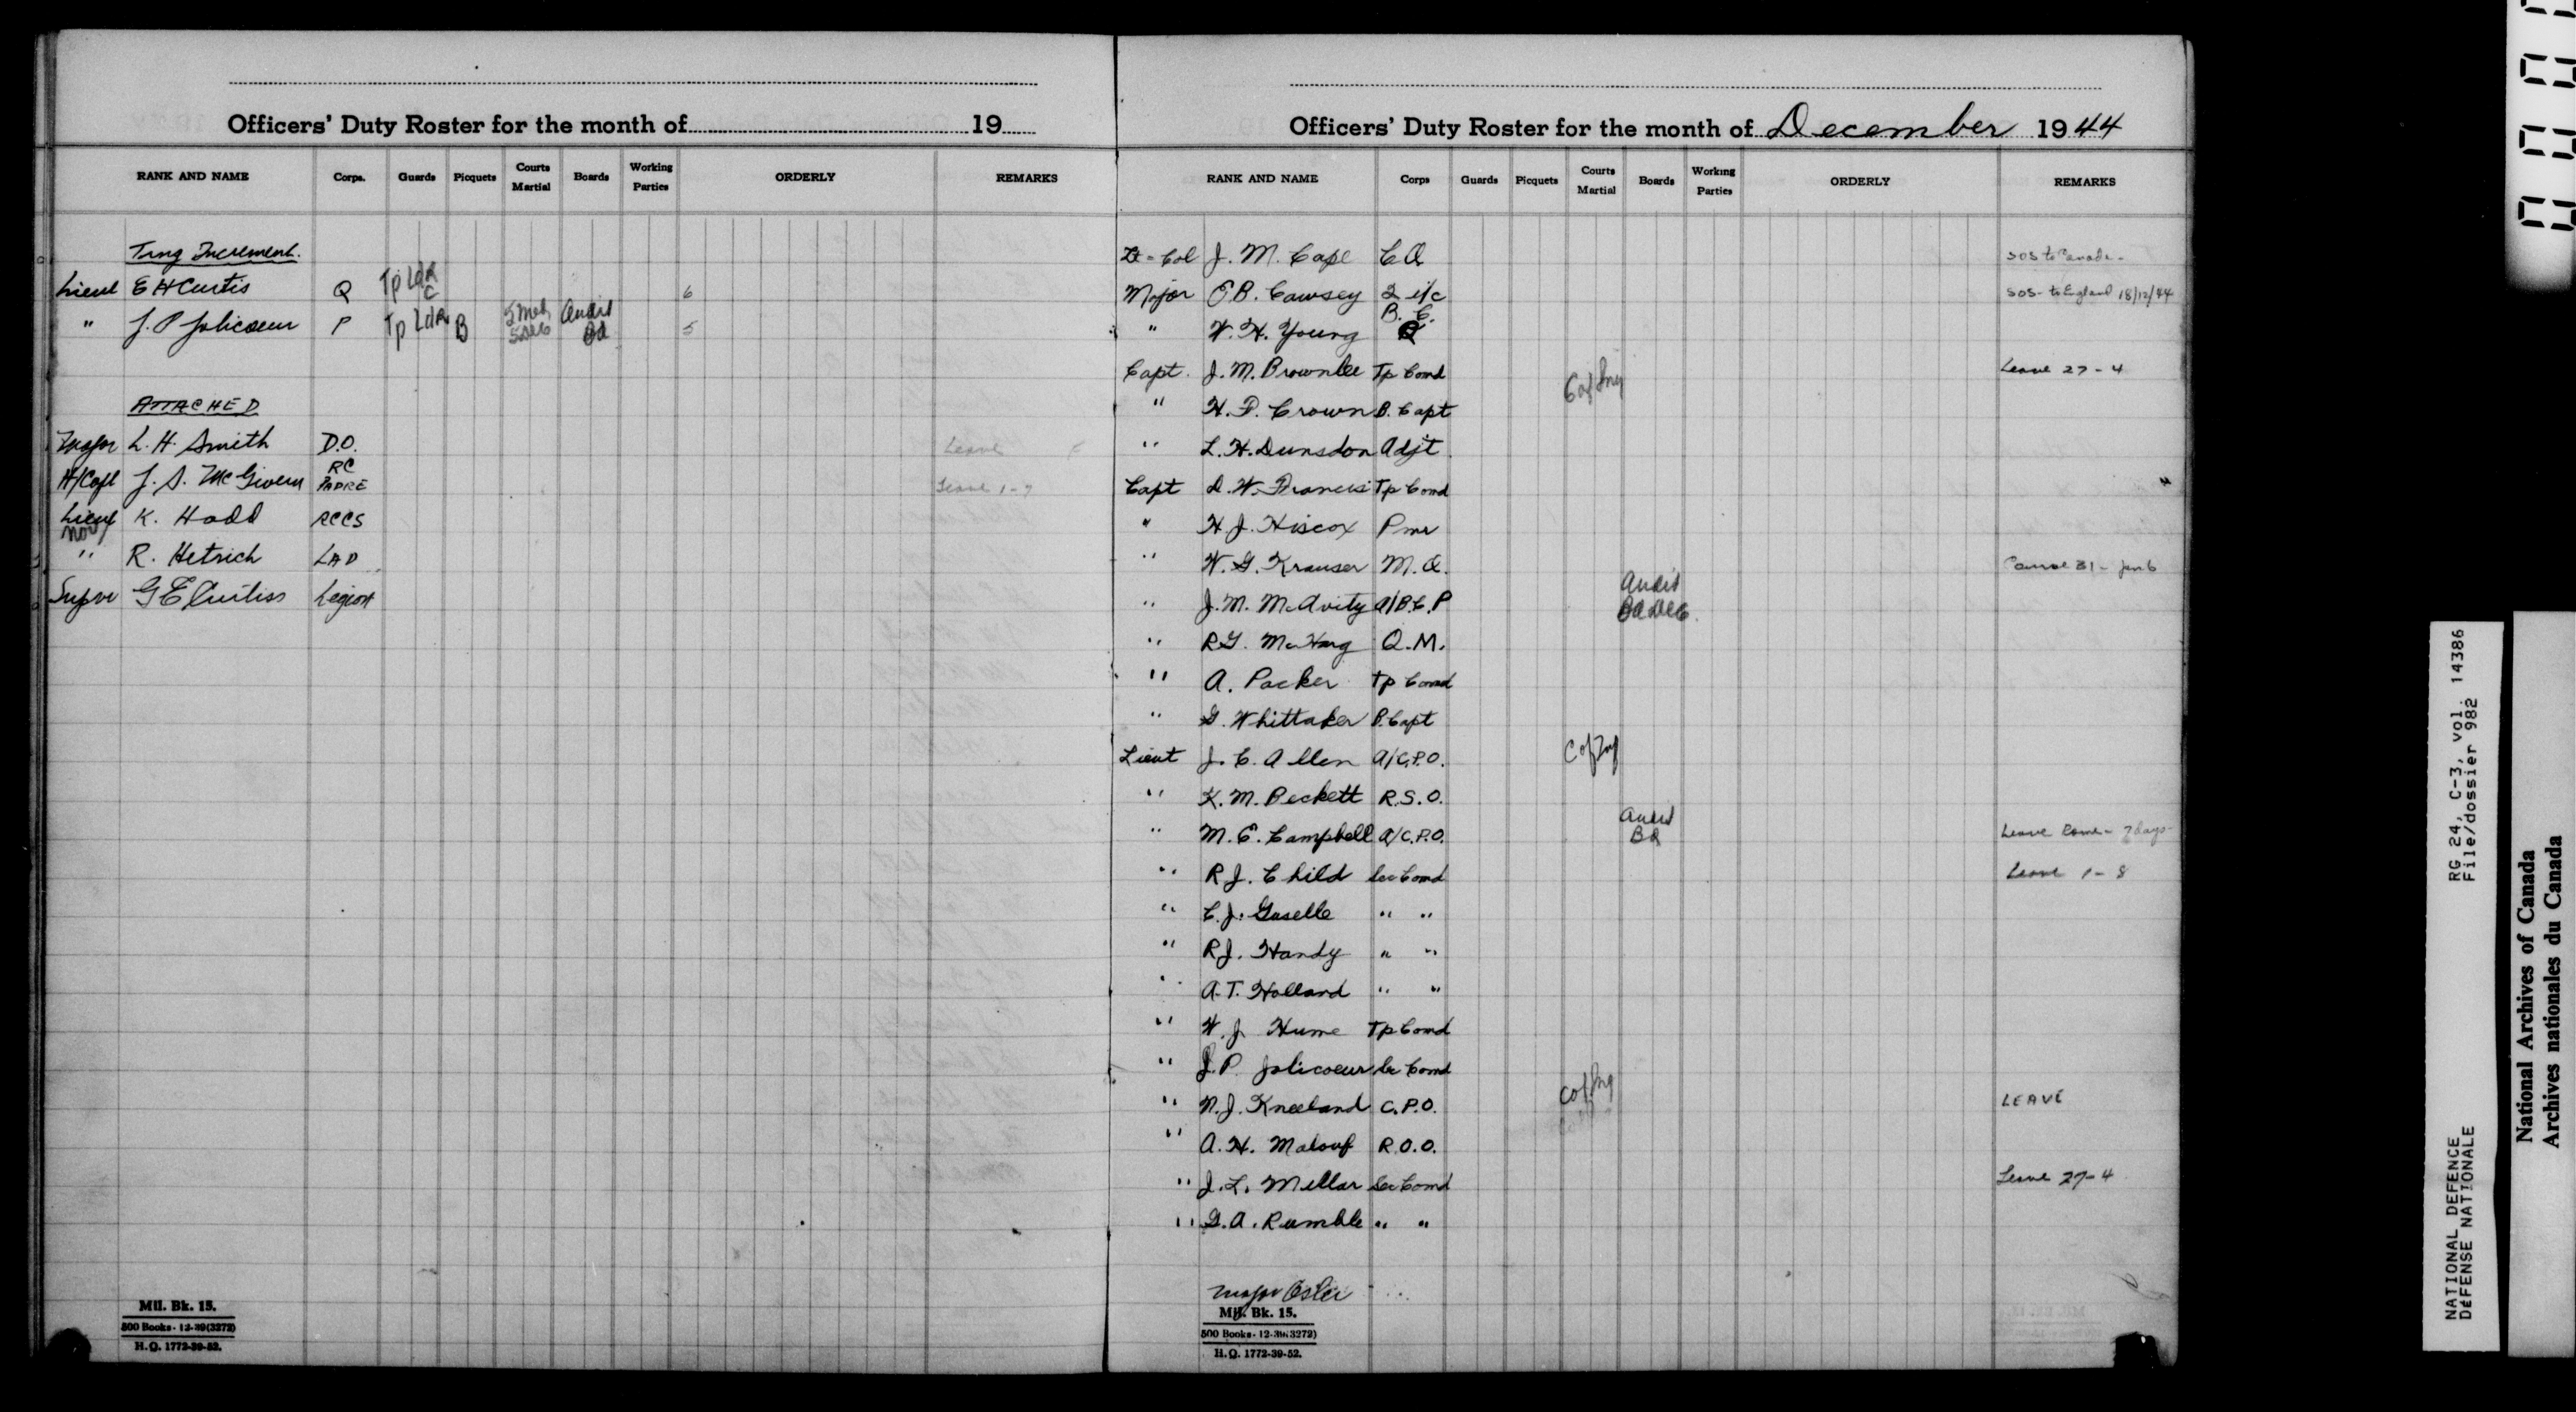 Officers' Duty Roster for the month of 19
RANK AND NAME Corps. Guards Picquets Courts Martial Boards Working Parties ORDERLY REMARKS
Trng Increment.
Lieut E H Curtis Q Tp Ldr C 6
" J. P Jolicoeur P Tp Ldr B Audit Bd 5
ATTACHED
Major L. H. Smith D.O. Leave
H/Capt J. S. McGivern RC PADRE Leave 1-7
Lieut K. Hadd RCCS
" R. Hetrich LAD
Supvr G E Curtiss Legion
Mil. Bk. 15.
500 Books - 12-39(3272)
H.Q. 1772-39-52.
Officers' Duty Roster for the month of December 1944
RANK AND NAME Corps Guards Picquets Courts Martial Boards Working Parties ORDERLY REMARKS
Lt-Col J. M. Cape C O SOS to Canada -
Major E. B. Cawsey 2 i/c SOS - to England 18/12/44
" W. H. Young B. C.
Capt. J. M. Brownlee Tp Comd Leave 27 - 4
" H. D. Crown B. Capt
" L. H. Dunsdon Adjt
Capt D. W. Francis Tp Comd
" H J. Hiscox Pmr
" W. G. Krauser M. O. Course 31 - Jan 6
" J. M. McAvity A/B.C. P Audit Bd Dec
" R G. McHarg Q.M.
" A. Packer Tp Comd
" G. Whittaker B. Capt
Lieut J. C. Allen A/C.P.O.
" K. M. Beckett R.S.O.
" M. E. Campbell A/C.P.O. Audit Bd Leave Rome - 7 days -
" R J. Child Sec Comd Leave 1 - 8
" C. J. Gaselle " "
" R J. Handy " "
" A. T. Holland " "
" W. J Hume Tp Comd
" J. P. Jolicoeur Sec Comd
" N. J. Kneeland C.P.O. LEAVE
" A. H. Malouf R.O.O.
" J. L. Millar Sec Comd Leave 27-4
" G. A. Rumble " "
Major Osler
Mil. Bk. 15.
500 Books - 12-39(3272)
H.Q. 1772-39-52.
RG 24, C-3, vol. 14386
File/dossier 982
NATIONAL DEFENCE
DÉFENSE NATIONALE
National Archives of Canada
Archives nationales du Canada